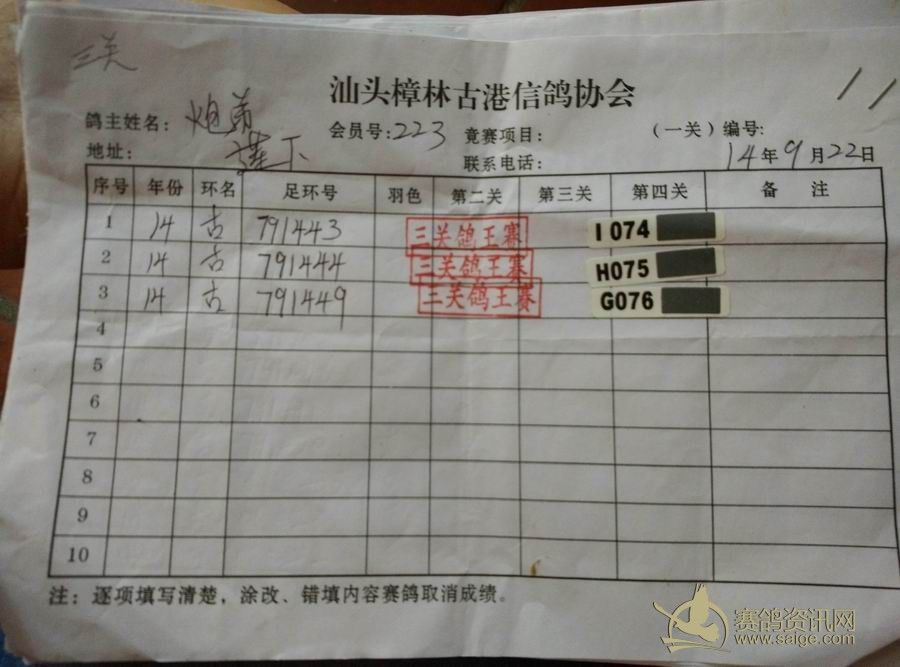 三关
汕头樟林古港信鸽协会
鸽主姓名: 炮弟 会员号: 223 竟赛项目: (一关) 编号:
地址: 莲下 联系电话: 14年9月22日
序号 年份 环名 足环号 羽色 第二关 第三关 第四关 备 注
1 14 古 791443 三关鸽王赛 I 074
2 14 古 791444 三关鸽王赛 H075
3 14 古 791449 三关鸽王赛 G076
4
5
6
7
8
9
10
注: 逐项填写清楚, 涂改、错填内容赛鸽取消成绩。
赛鸽资讯网
www.saige.com